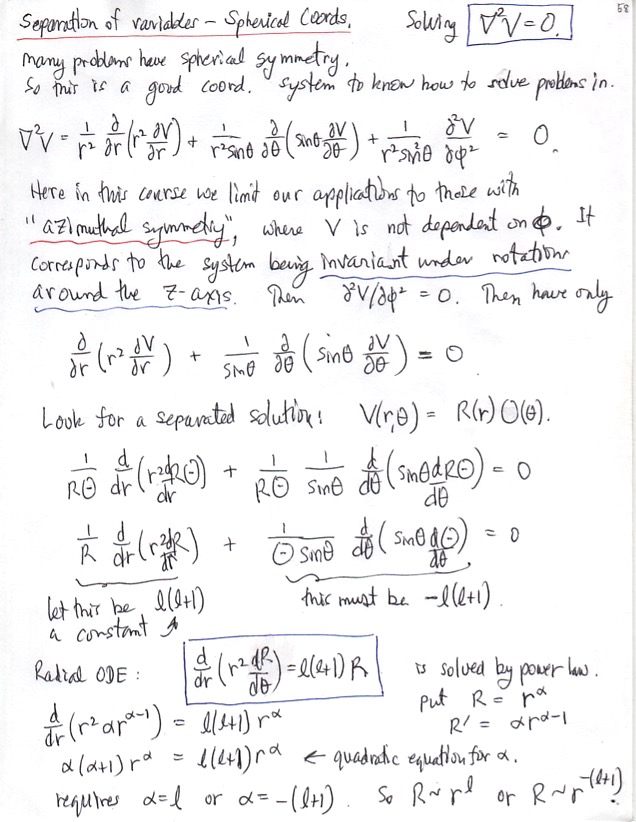 58
Separation of variables – Spherical Coords. Solving ∇²V = 0.
Many problems have spherical symmetry.
So this is a good coord. system to know how to solve problems in.
∇²V = 1/r² ∂/∂r (r² ∂V/∂r) + 1/(r² sinθ) ∂/∂θ (sinθ ∂V/∂θ) + 1/(r² sin²θ) ∂²V/∂φ² = 0.
Here in this course we limit our applications to those with
"azimuthal symmetry", where V is not dependent on φ. It
corresponds to the system being invariant under rotations
around the z-axis. Then ∂²V/∂φ² = 0. Then have only
∂/∂r (r² ∂V/∂r) + 1/sinθ ∂/∂θ (sinθ ∂V/∂θ) = 0
Look for a separated solution: V(r,θ) = R(r) Θ(θ).
1/(RΘ) d/dr (r² dRΘ/dr) + 1/(RΘ) 1/sinθ d/dθ (sinθ dRΘ/dθ) = 0
1/R d/dr (r² dR/dr) + 1/(Θ sinθ) d/dθ (sinθ dΘ/dθ) = 0
let this be l(l+1) this must be -l(l+1).
a constant ↗
Radial ODE: d/dr (r² dR/dθ) = l(l+1) R is solved by power law.
put R = r^α
R' = αr^(α-1)
d/dr (r² αr^(α-1)) = l(l+1) r^α
α(α+1) r^α = l(l+1) r^α ← quadratic equation for α.
requires α=l or α= -(l+1). So R~r^l or R~r^(-(l+1)).